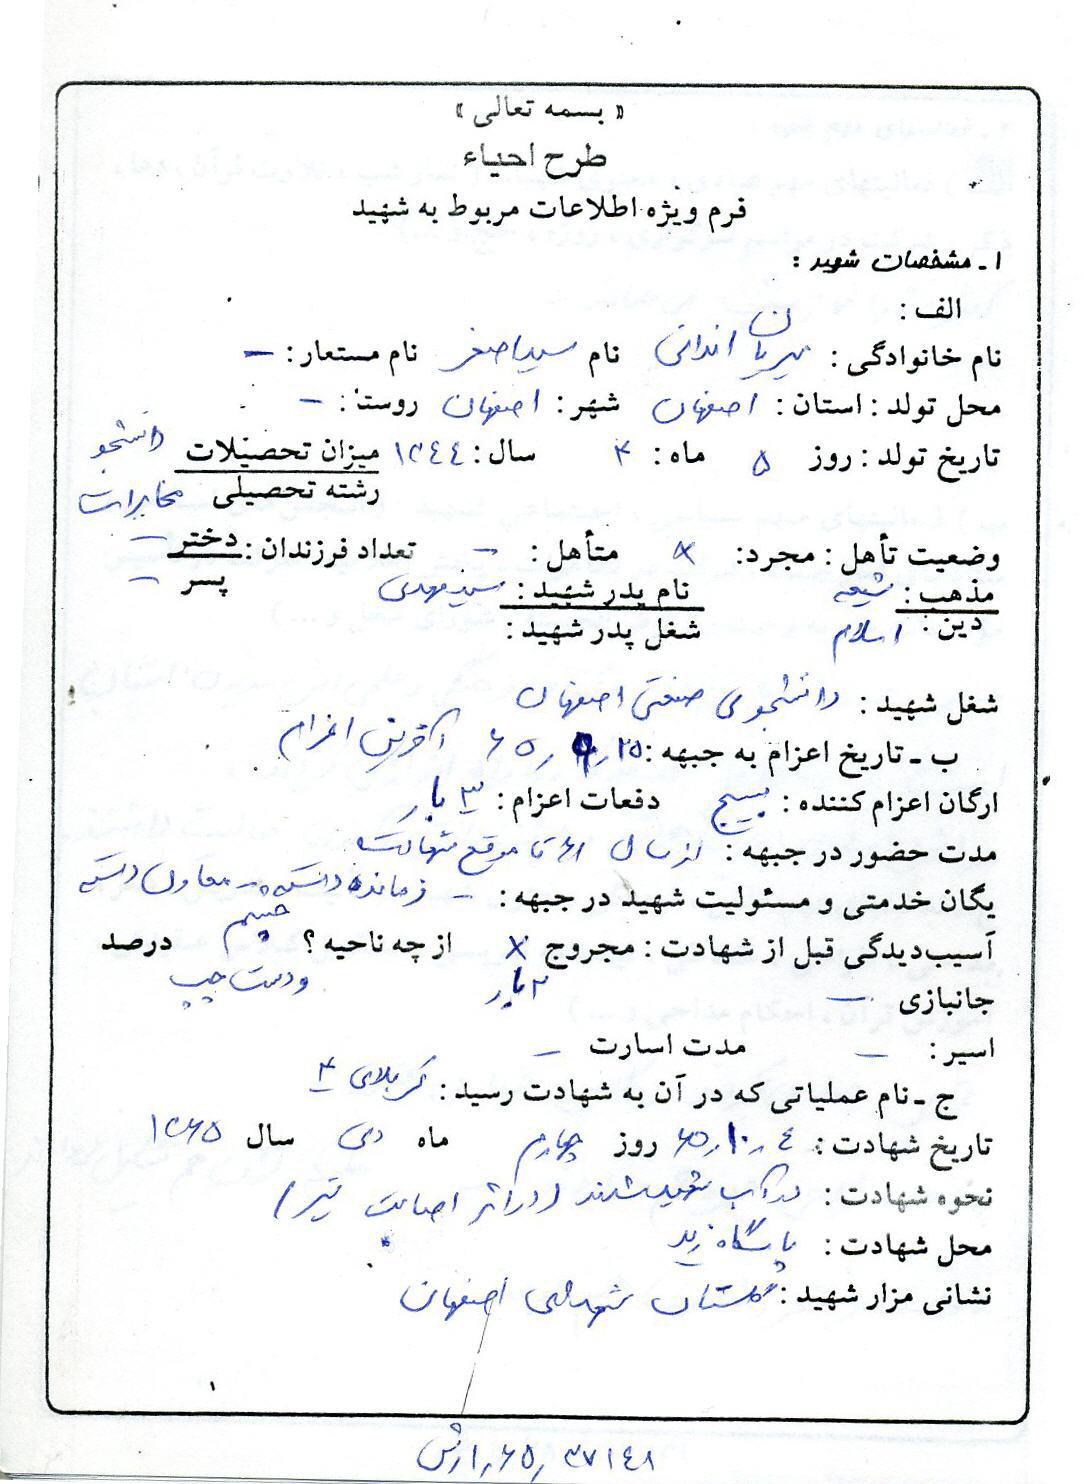 « بسمه تعالی »
طرح احیاء
فرم ویژه اطلاعات مربوط به شهید
۱ ـ مشخصات شهید :
الف :
نام خانوادگی : میریان اندانی نام سیداصغر نام مستعار : –
محل تولد : استان : اصفهان شهر : اصفهان روستا : –
تاریخ تولد : روز ۵ ماه : ۴ سال : ۱۳۴۴ میزان تحصیلات دانشجو
رشته تحصیلی مخابرات
وضعیت تأهل : مجرد : × متأهل : – تعداد فرزندان : دختر –
مذهب : شیعه نام پدر شهید : سیدمهدی پسر –
دین : اسلام شغل پدر شهید :
شغل شهید : دانشجوی صنعتی اصفهان
ب ـ تاریخ اعزام به جبهه : ۶۵٫۹٫۲۵ آخرین اعزام
ارگان اعزام کننده : بسیج دفعات اعزام : ۳ بار
مدت حضور در جبهه : از سال ۶۱ تا موقع شهادت
یگان خدمتی و مسئولیت شهید در جبهه : – فرمانده دسته – معاون دسته
آسیب‌دیدگی قبل از شهادت : مجروح × از چه ناحیه ؟ چشم درصد
جانبازی – ۲ بار ودست چپ
اسیر : – مدت اسارت –
ج ـ نام عملیاتی که در آن به شهادت رسید : کربلای ۴
تاریخ شهادت : ۶۵٫۱۰٫۴ روز چهارم ماه دی سال ۱۳۶۵
نحوه شهادت : در آب شهید شدند (در اثر اصابت تیر)
محل شهادت : پاسگاه زید
نشانی مزار شهید : گلستان شهدای اصفهان